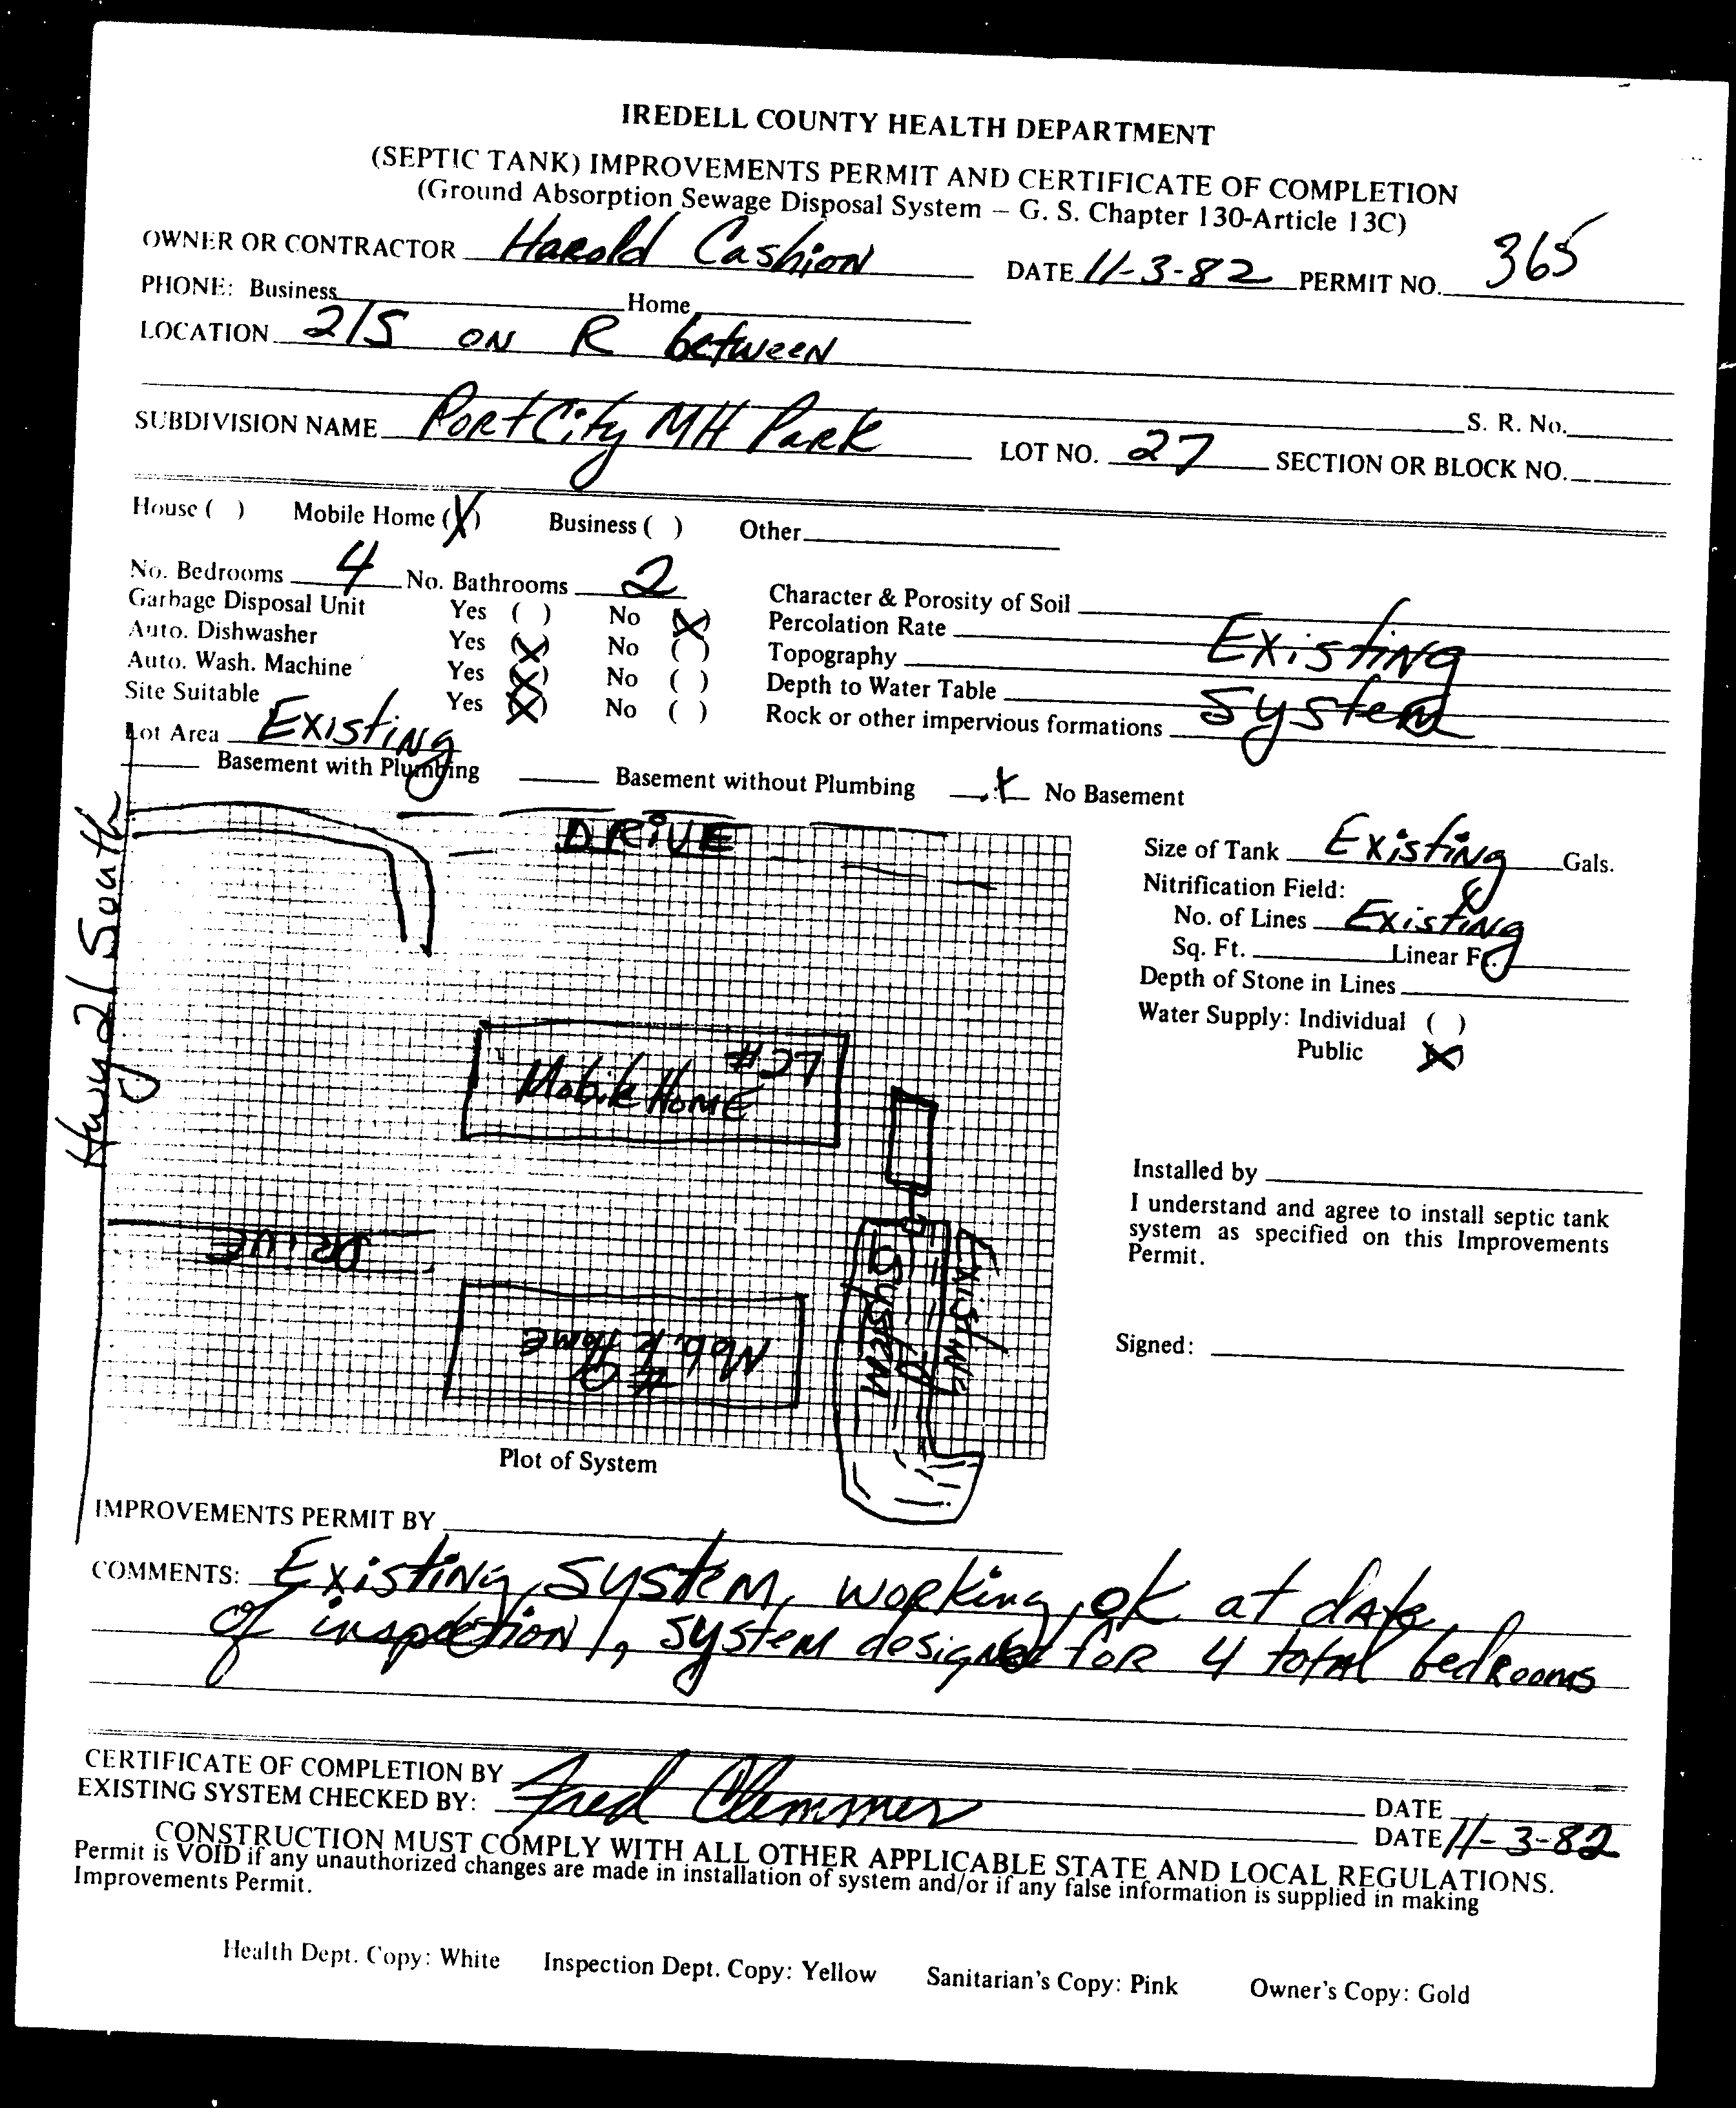 IREDELL COUNTY HEALTH DEPARTMENT
(SEPTIC TANK) IMPROVEMENTS PERMIT AND CERTIFICATE OF COMPLETION
(Ground Absorption Sewage Disposal System – G. S. Chapter 130-Article 13C)
OWNER OR CONTRACTOR Harold Cashion DATE 11-3-82 PERMIT NO. 365
PHONE: Business Home
LOCATION 21S on R between
S. R. No.
SUBDIVISION NAME Port City MH Park LOT NO. 27 SECTION OR BLOCK NO.
House ( ) Mobile Home (X) Business ( ) Other
No. Bedrooms 4 No. Bathrooms 2
Garbage Disposal Unit Yes ( ) No (X)
Auto. Dishwasher Yes (X) No ( )
Auto. Wash. Machine Yes (X) No ( )
Site Suitable Yes (X) No ( )
Lot Area Existing
Character & Porosity of Soil
Percolation Rate Existing
Topography
Depth to Water Table System
Rock or other impervious formations
Basement with Plumbing Basement without Plumbing X No Basement
Hwy 21 South
DRIVE
#27
Mobile Home
Drive
Mobile Home
Existing
System
Plot of System
Size of Tank Existing Gals.
Nitrification Field:
No. of Lines Existing
Sq. Ft. Linear Ft.
Depth of Stone in Lines
Water Supply: Individual ( )
Public (X)
Installed by
I understand and agree to install septic tank
system as specified on this Improvements
Permit.
Signed:
IMPROVEMENTS PERMIT BY
COMMENTS: Existing system, working ok at date
of inspection, system designed for 4 total bedrooms
CERTIFICATE OF COMPLETION BY DATE
EXISTING SYSTEM CHECKED BY: Fred Clemmer DATE 11-3-82
CONSTRUCTION MUST COMPLY WITH ALL OTHER APPLICABLE STATE AND LOCAL REGULATIONS.
Permit is VOID if any unauthorized changes are made in installation of system and/or if any false information is supplied in making
Improvements Permit.
Health Dept. Copy: White Inspection Dept. Copy: Yellow Sanitarian's Copy: Pink Owner's Copy: Gold